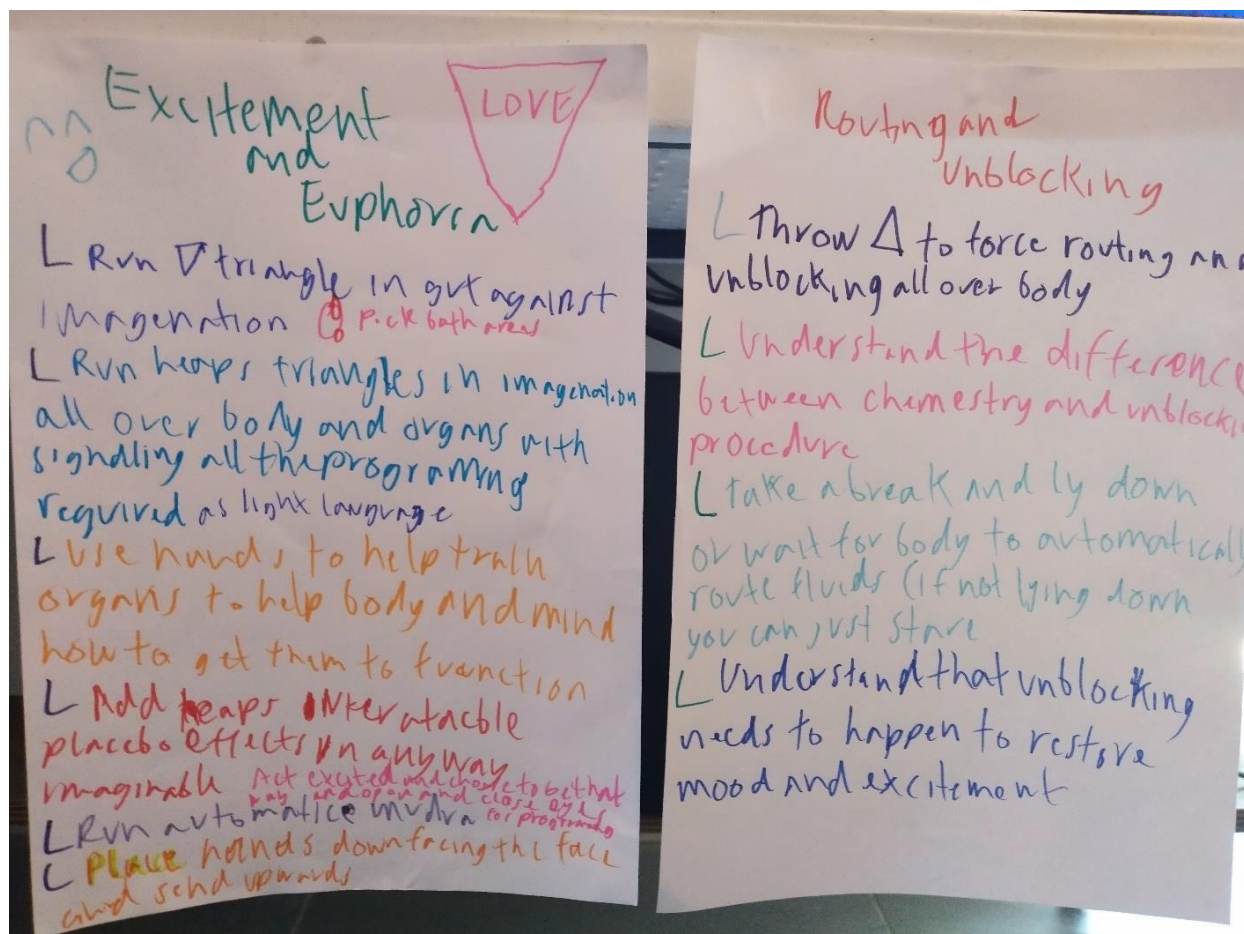 Excitement
and
Euphoria
LOVE
L Run ▽ triangle in gut against
imagenation Pick both areas
L Run heaps triangles in imagenation
all over body and organs with
signalling all the programing
required as light language
L Use hands to help train
organs to help body and mind
how to get them to function
L Add heaps
placebo effects in anyway
imaginable Act excited and chose to be that
way and open and close eyes
L Run automatice mudra for programing
L Place hands down facing the face
and send upwards
Routing and
Unblocking
L Throw △ to force routing an
unblocking all over body
L Understand the difference
between chemestry and unblocki
procedure
L take a break and ly down
or wait for body to automatically
route fluids (if not lying down
you can just stare
L Understand that unblocking
needs to happen to restore
mood and excitement